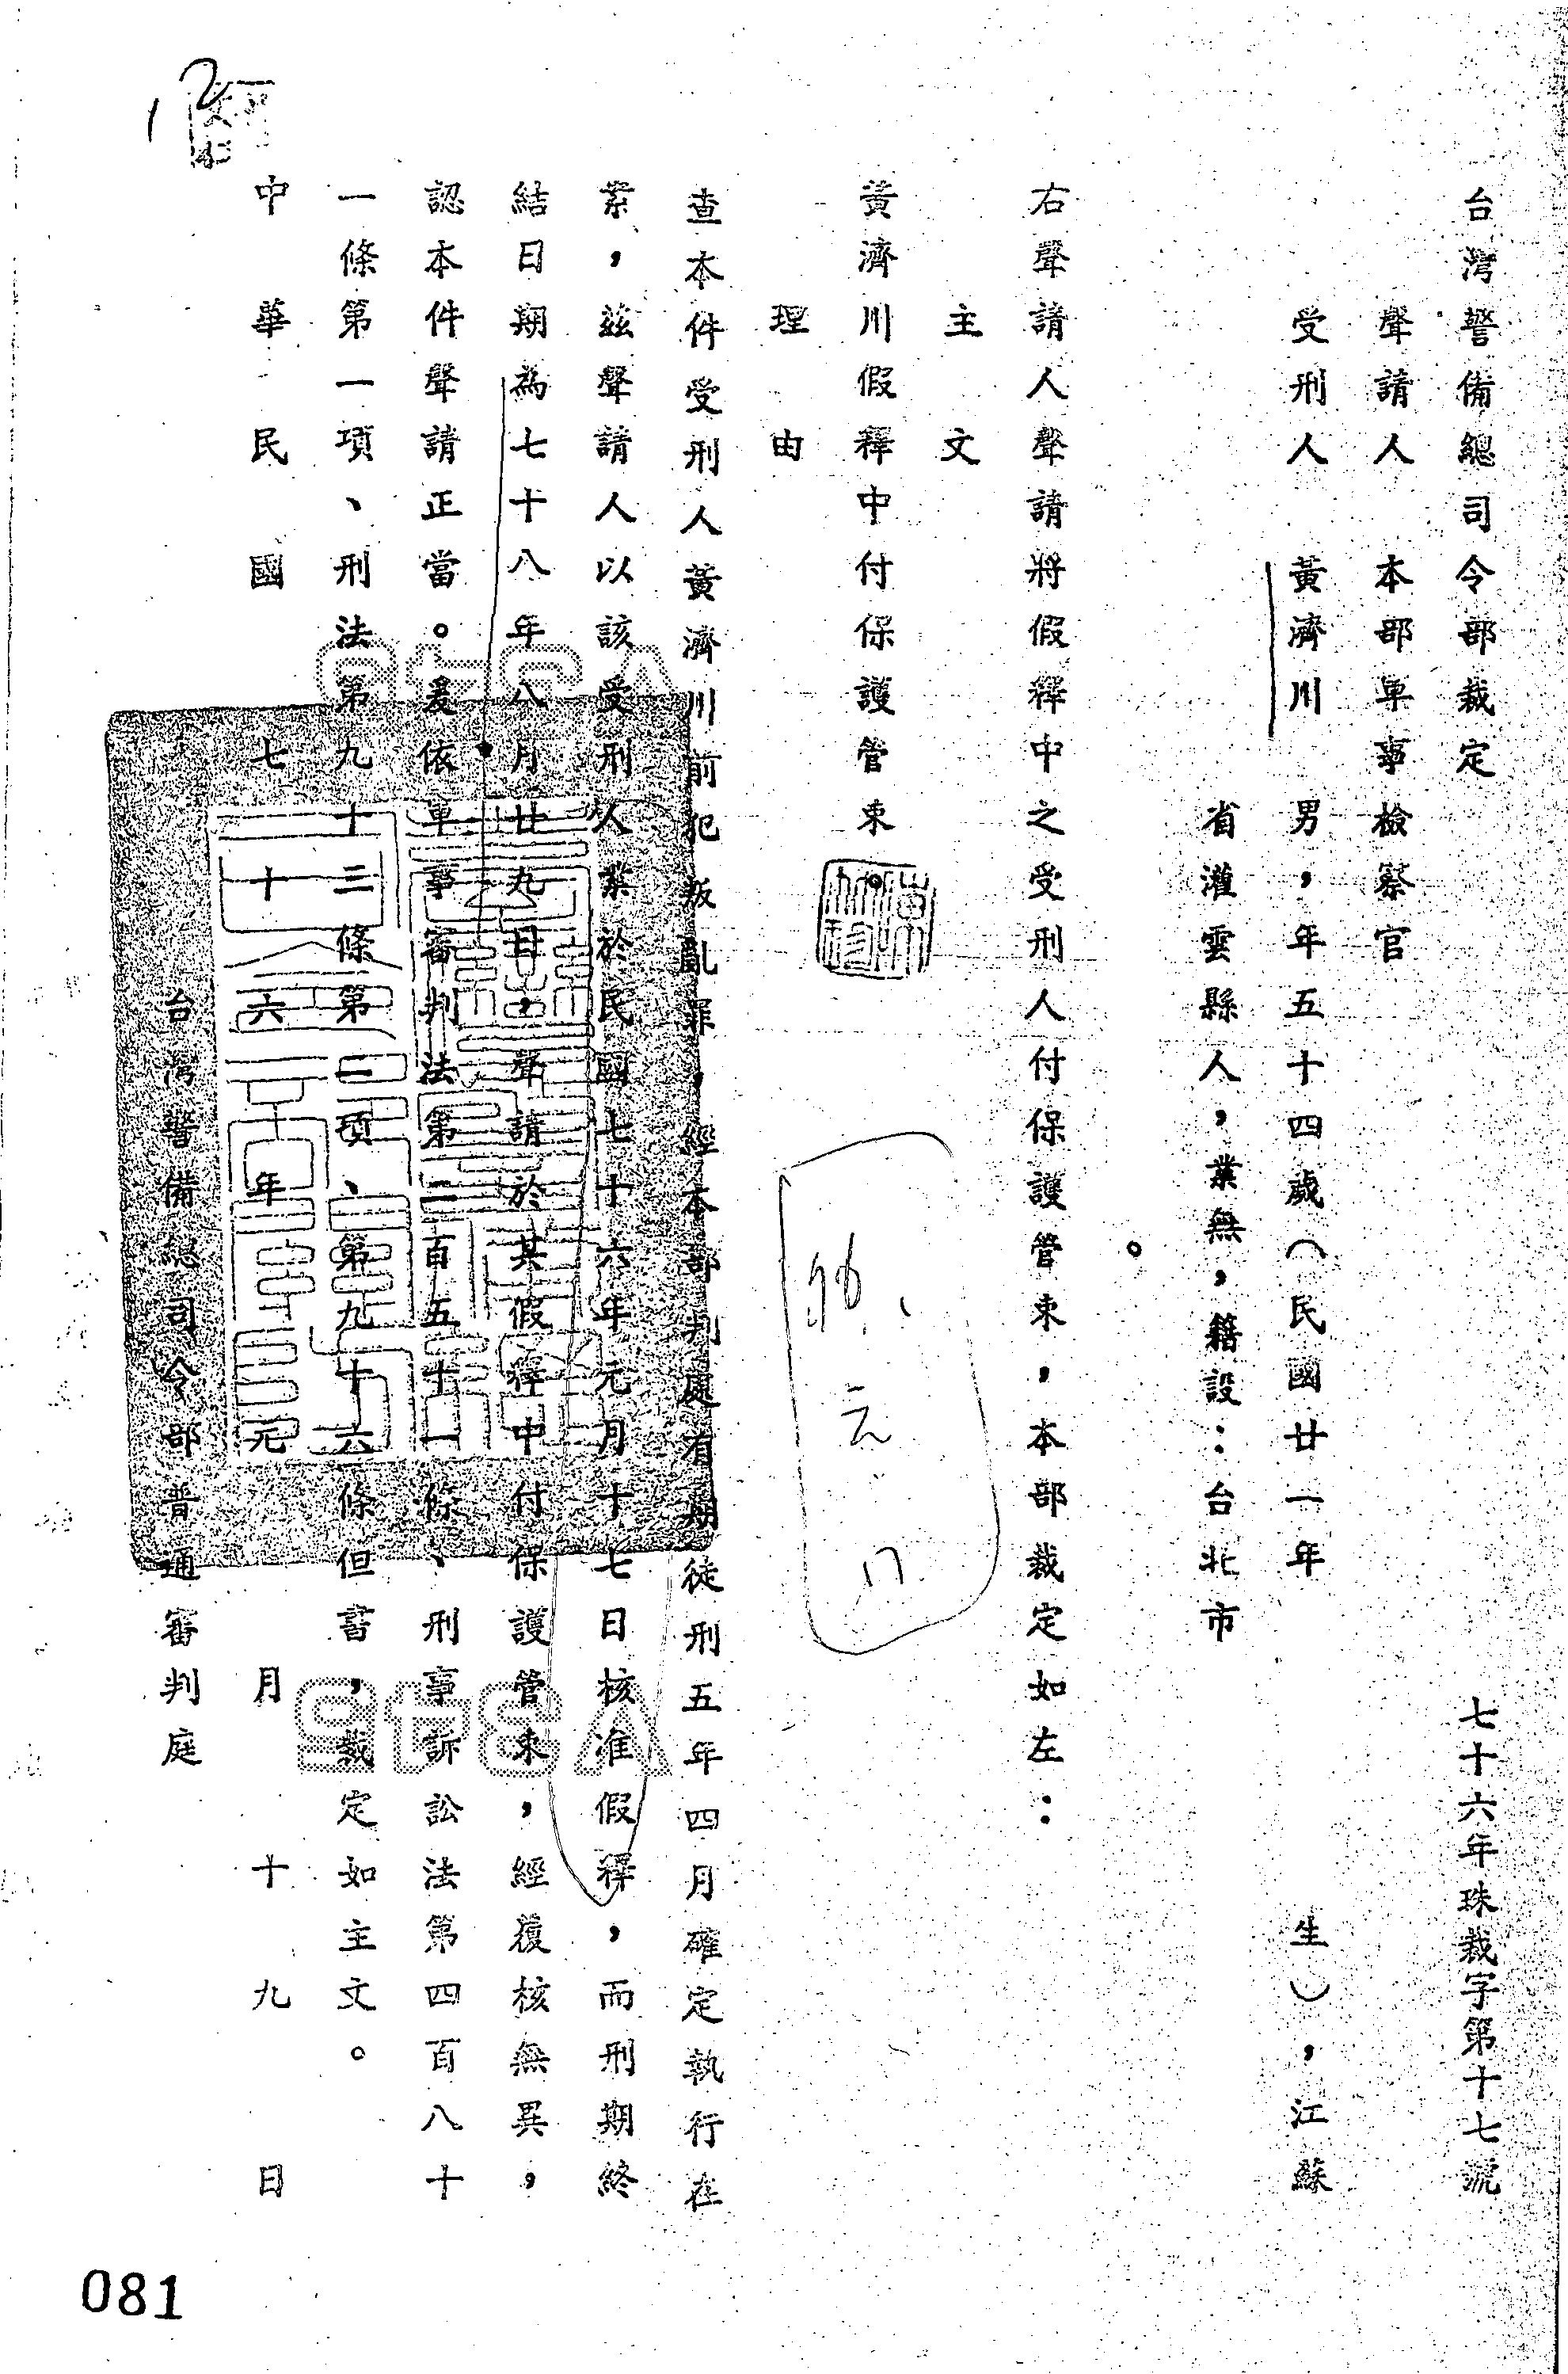 台灣警備總司令部裁定　七十六年珠裁字第十七號
聲請人　本部軍事檢察官
受刑人　黃濟川　男，年五十四歲（民國廿一年　生），江蘇
省灌雲縣人，業無，籍設：台北市
。
右聲請人聲請將假釋中之受刑人付保護管束，本部裁定如左：
主文
黃濟川假釋中付保護管束。
理由
查本件受刑人黃濟川前犯叛亂罪，經本部判處有期徒刑五年四月確定執行在
案，茲聲請人以該受刑人業於民國七十六年元月十七日核准假釋，而刑期終
結日期為七十八年八月廿九日，聲請於其假釋中付保護管束，經覆核無異，
認本件聲請正當。爰依軍事審判法第二百五十一條、刑事訴訟法第四百八十
一條第一項、刑法第九十三條第二項、第九十六條但書，裁定如主文。
中華民國七十六年元月十九日
台灣警備總司令部普通審判庭
12
081